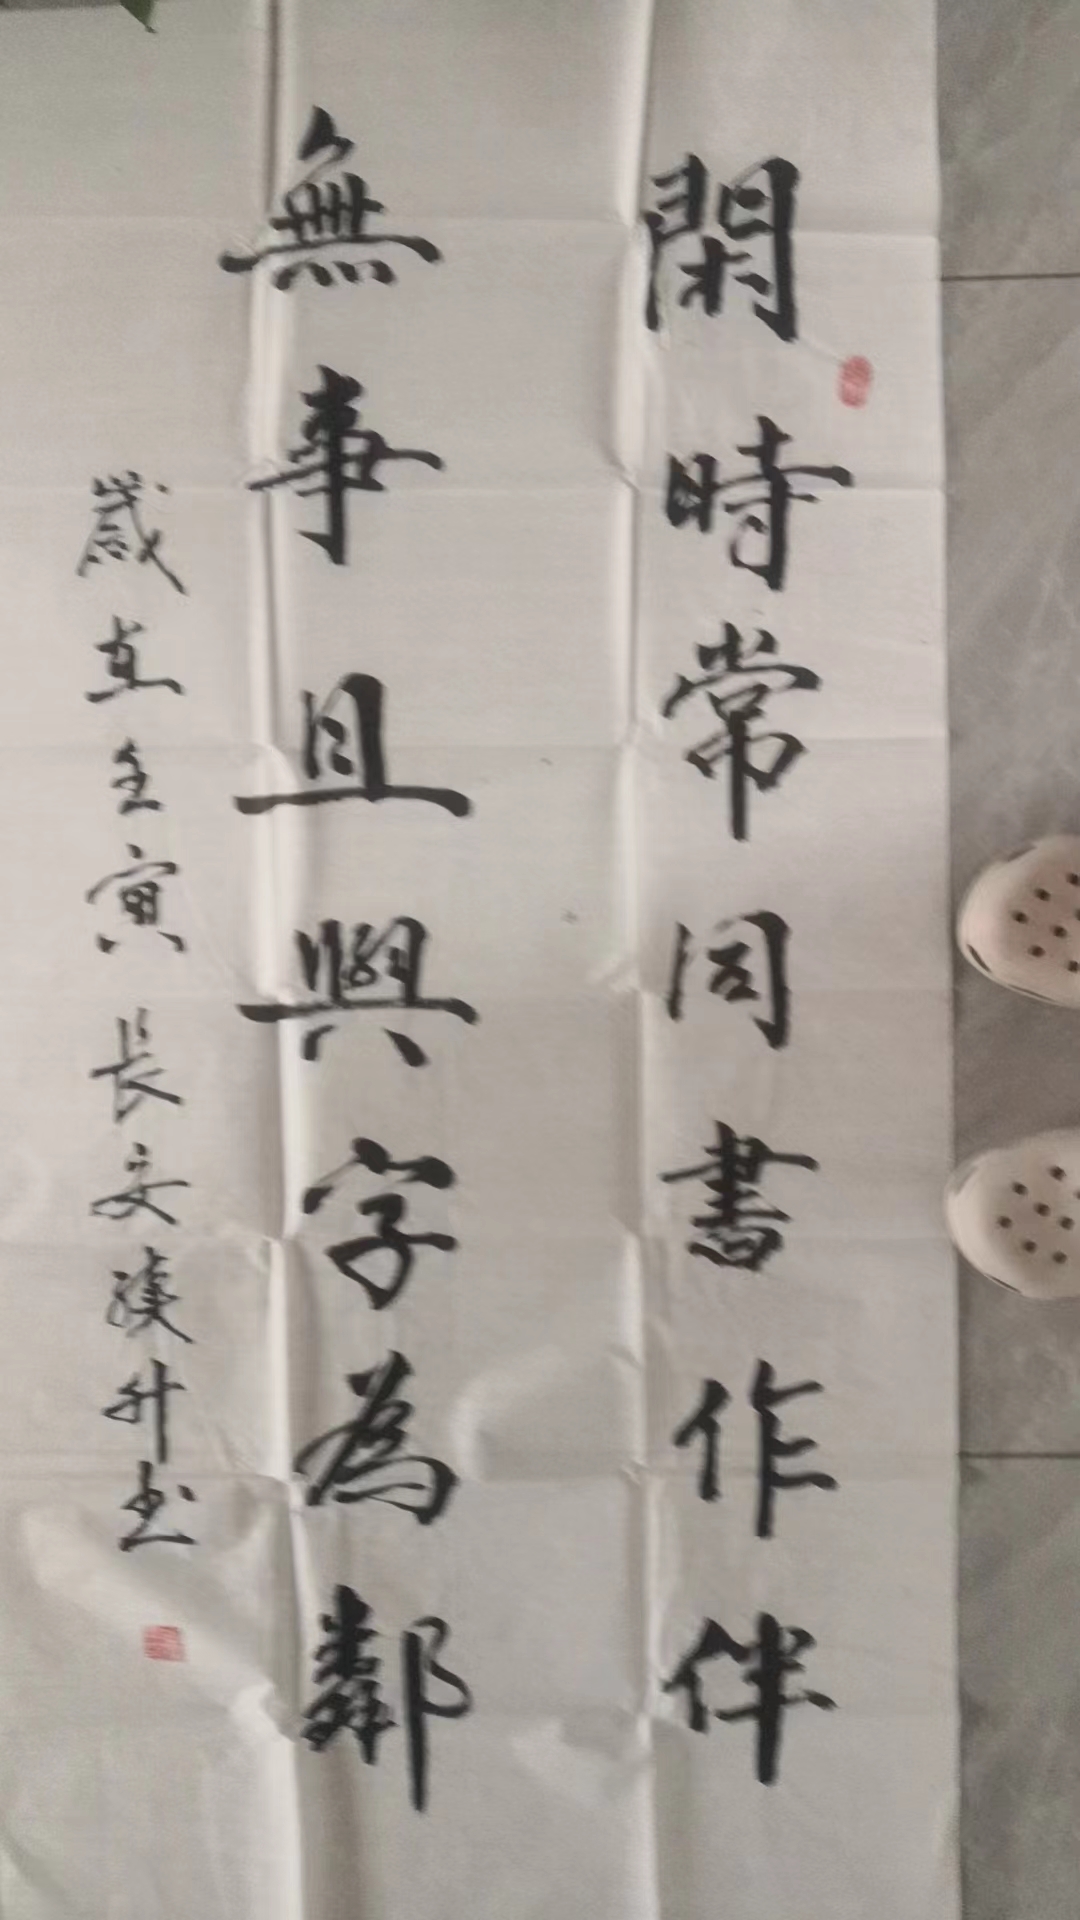 閑時常同書作伴
無事且與字為鄰
歲在壬寅 長安漢升书